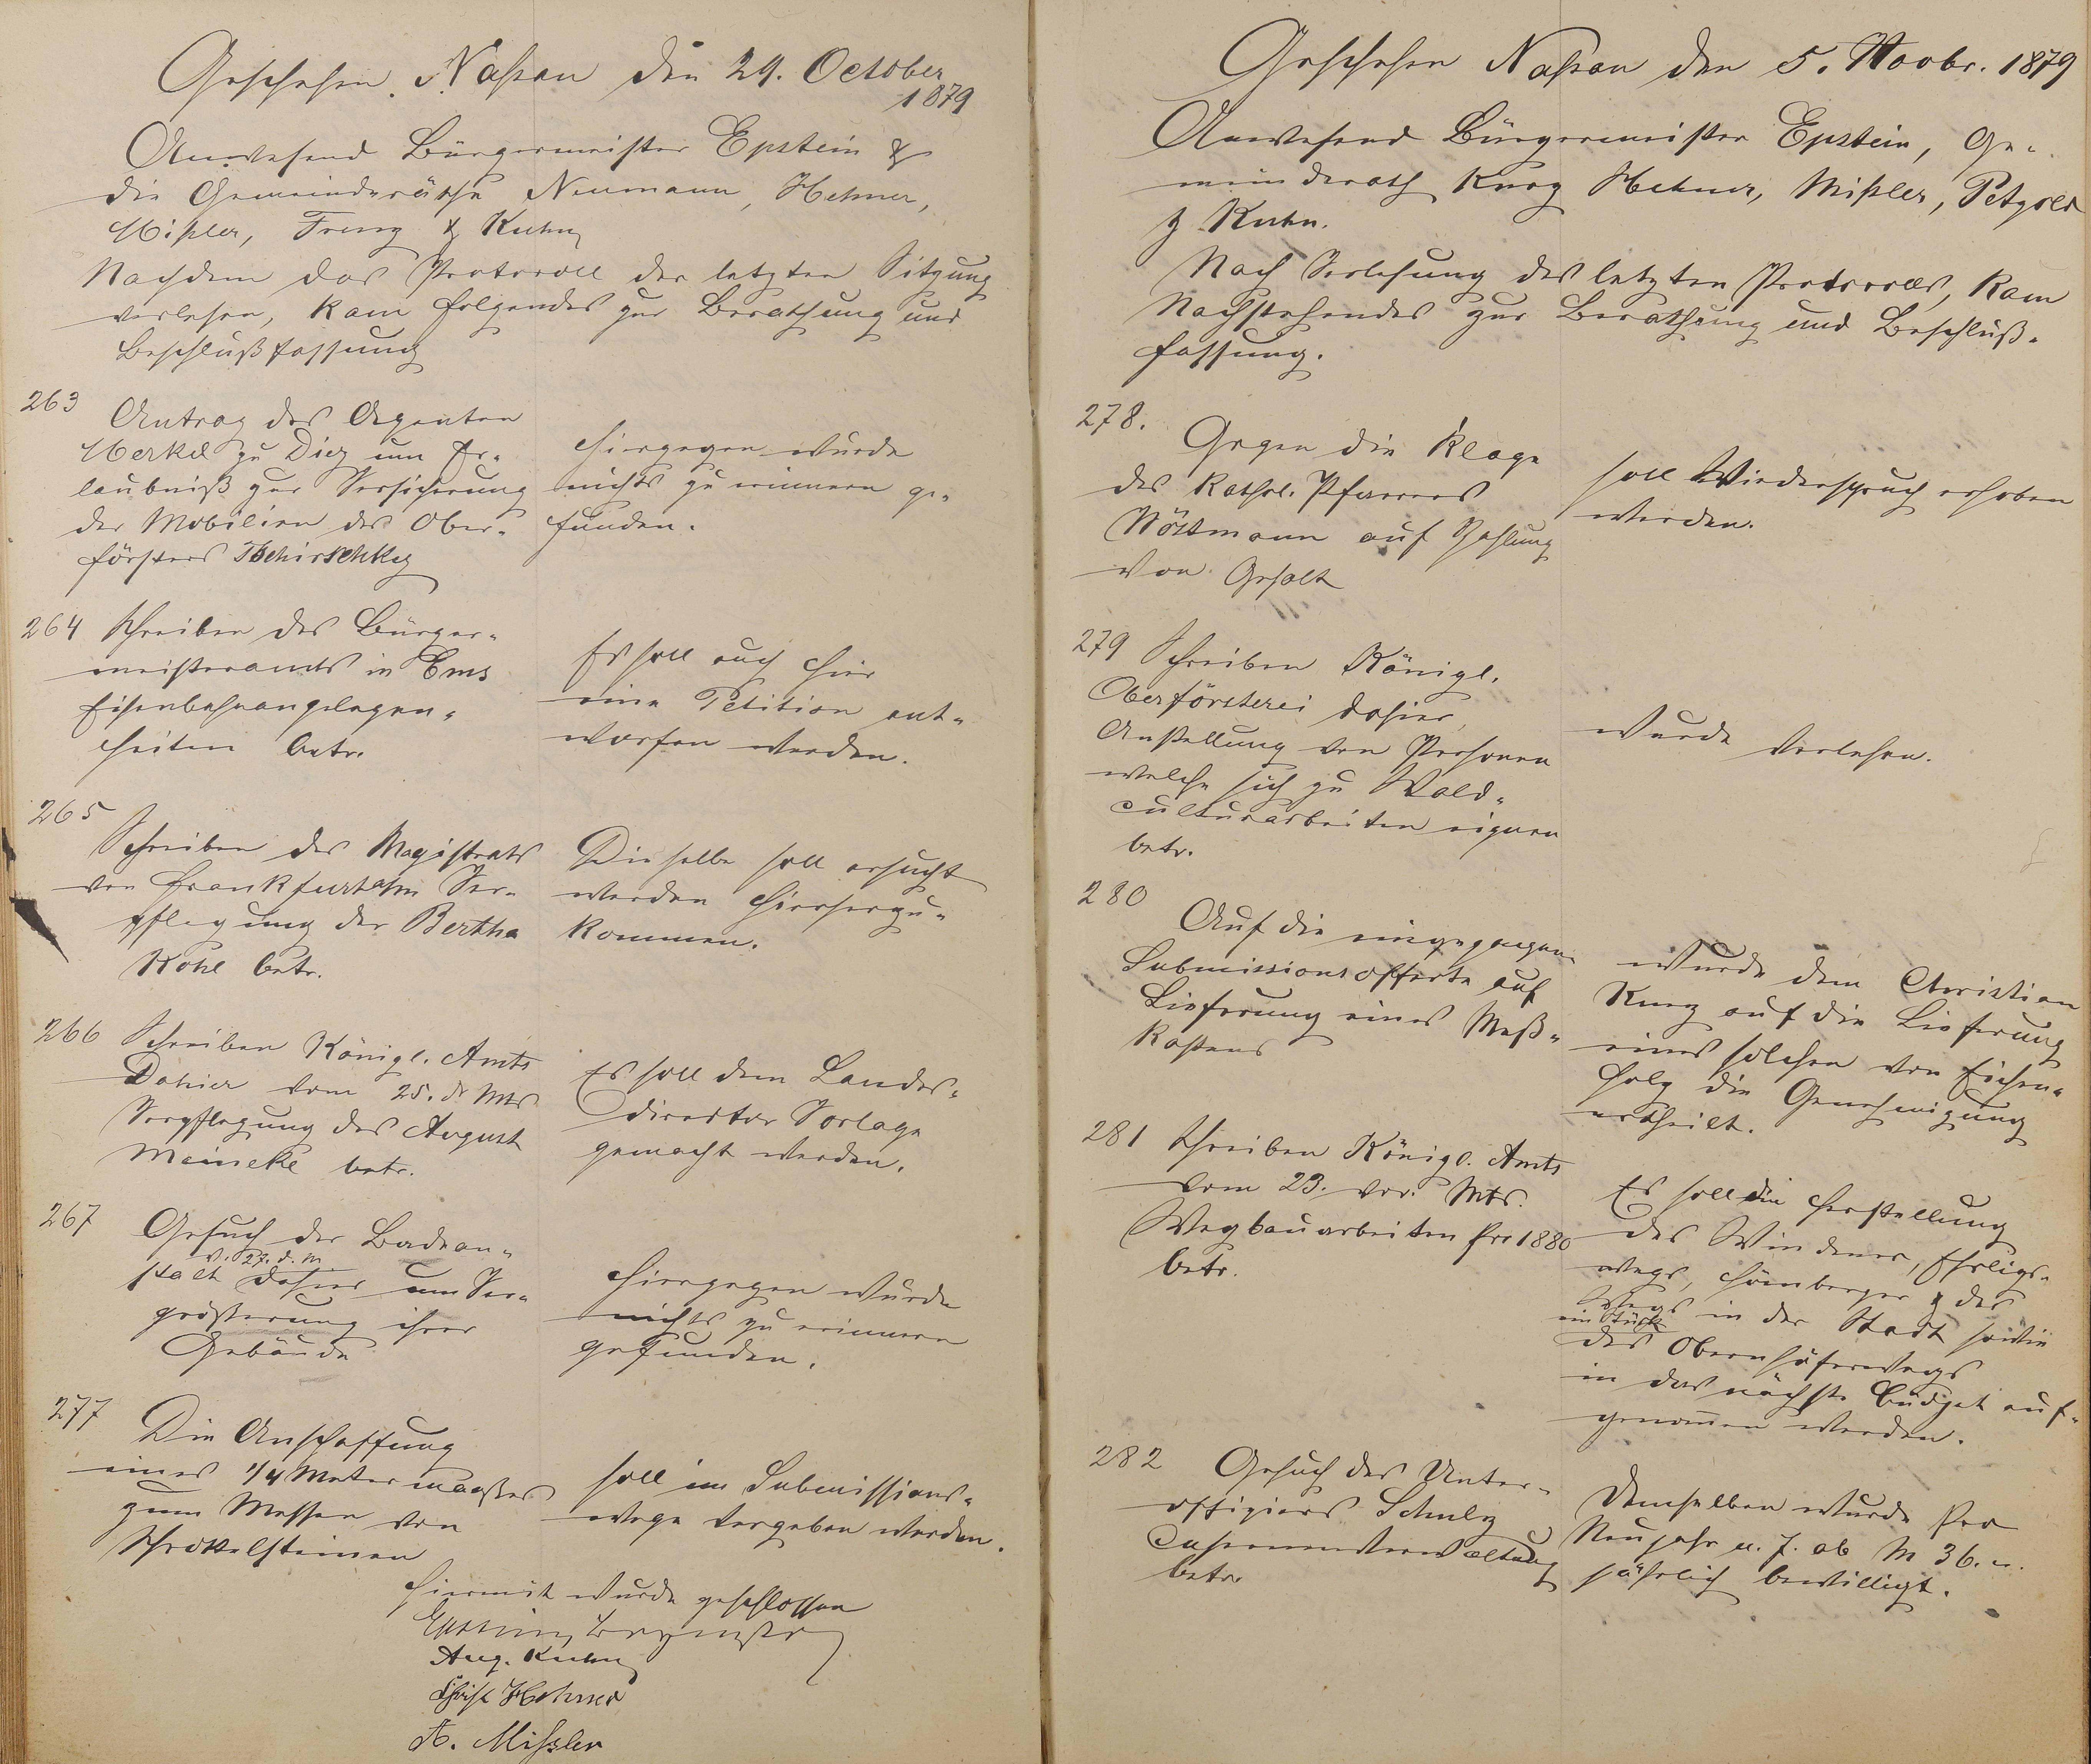 Geschehen Nassau den 29. October
1879
Anwesend Bürgermeister Epstein &
die Gemeinderäthe Neumann, Hehner,
Mißler, Trenz & Kuhn
Nachdem das Protocoll der letzten Sitzung
verlesen, kam folgendes zur Berathung und
Beschlußfassung
263
Antrag des Agenten
Merkel zu Diez um Er-
laubniß zur Versicherung
der Mobilien des Ober-
försters Tschirschky
Hiergegen wurde
nichts zu erinnern ge-
funden.
264 Schreiben des Bürger-
meisteramts in Ems
Eisenbahnangelegen-
heiten betr.
Es soll auch hier
eine Petition ent-
worfen werden.
265
Schreiben des Magistrats
von Frankfurt a/m Ver-
pflegung der Bertha
Kohl betr.
Dieselbe soll ersucht
werden hierherzu-
kommen.
266 Schreiben Königl. Amts
Dahier vom 25. ds Mts
Verpflegung des August
Meineke betr.
Es soll dem Landes-
director Vorlage
gemacht werden.
267
Gesuch der Badean-
v. 27. d. M
stalt dahier um Ver-
größerung ihrer
Gebäude
Hiergegen wurde
nichts zu erinnern
gefunden.
277
Die Anschaffung
eines 1/4 Meter maaßes
zum Messen von
Schrottelsteinen
soll im Submissions-
wege vergeben werden.
Hiermit wurde geschlossen
Epstein, Bürgermstr
Aug. Kuhn
Christ Hehner
A. Missler
Geschehen Nassau den 5. Novbr. 1879
Anwesend Bürgermeister Epstein, Ge-
meinderath Kurz Hehner, Mißler, Petzold
& Kuhn.
Nach Verlesung des letzten Protocolls, kam
Nachstehendes zur Berathung und Beschluß-
fassung.
278.
Gegen die Klage
des Kathol. Pfarrers
auf Zahlung
von Gehalt
soll Wiederspruch erhoben
werden.
279 Schreiben Königl.
Oberförsterei dahier,
Anstellung von Personen
welche sich zu Wald-
culturarbeiten eignen
betr.
wurde verlesen.
280
Auf die eingegangene
Submissionsofferte auf
Lieferung eines Meß-
kastens
wurde dem Christian
Kurz auf die Lieferung
eines solchen von Eichen-
holz die Genehmigung
ertheilt.
281 Schreiben Königl. Amts
vom 23. vor. Mts.
Wegbauarbeiten pro 1880
betr.
Es soll die Herstellung
des Windener, Ehrligs-
wegs, Hömberger & des
Wegs in der Stadt sowie
ein Stück
des Obernhöferwegs
in das nächste Budget auf-
genommen werden.
282 Gesuch des Unter-
offiziers Schulz
Casernenverwaltung
betr.
Demselben wurde pro
Neujahr n. J. ab M 36.
jährlich bewilligt.